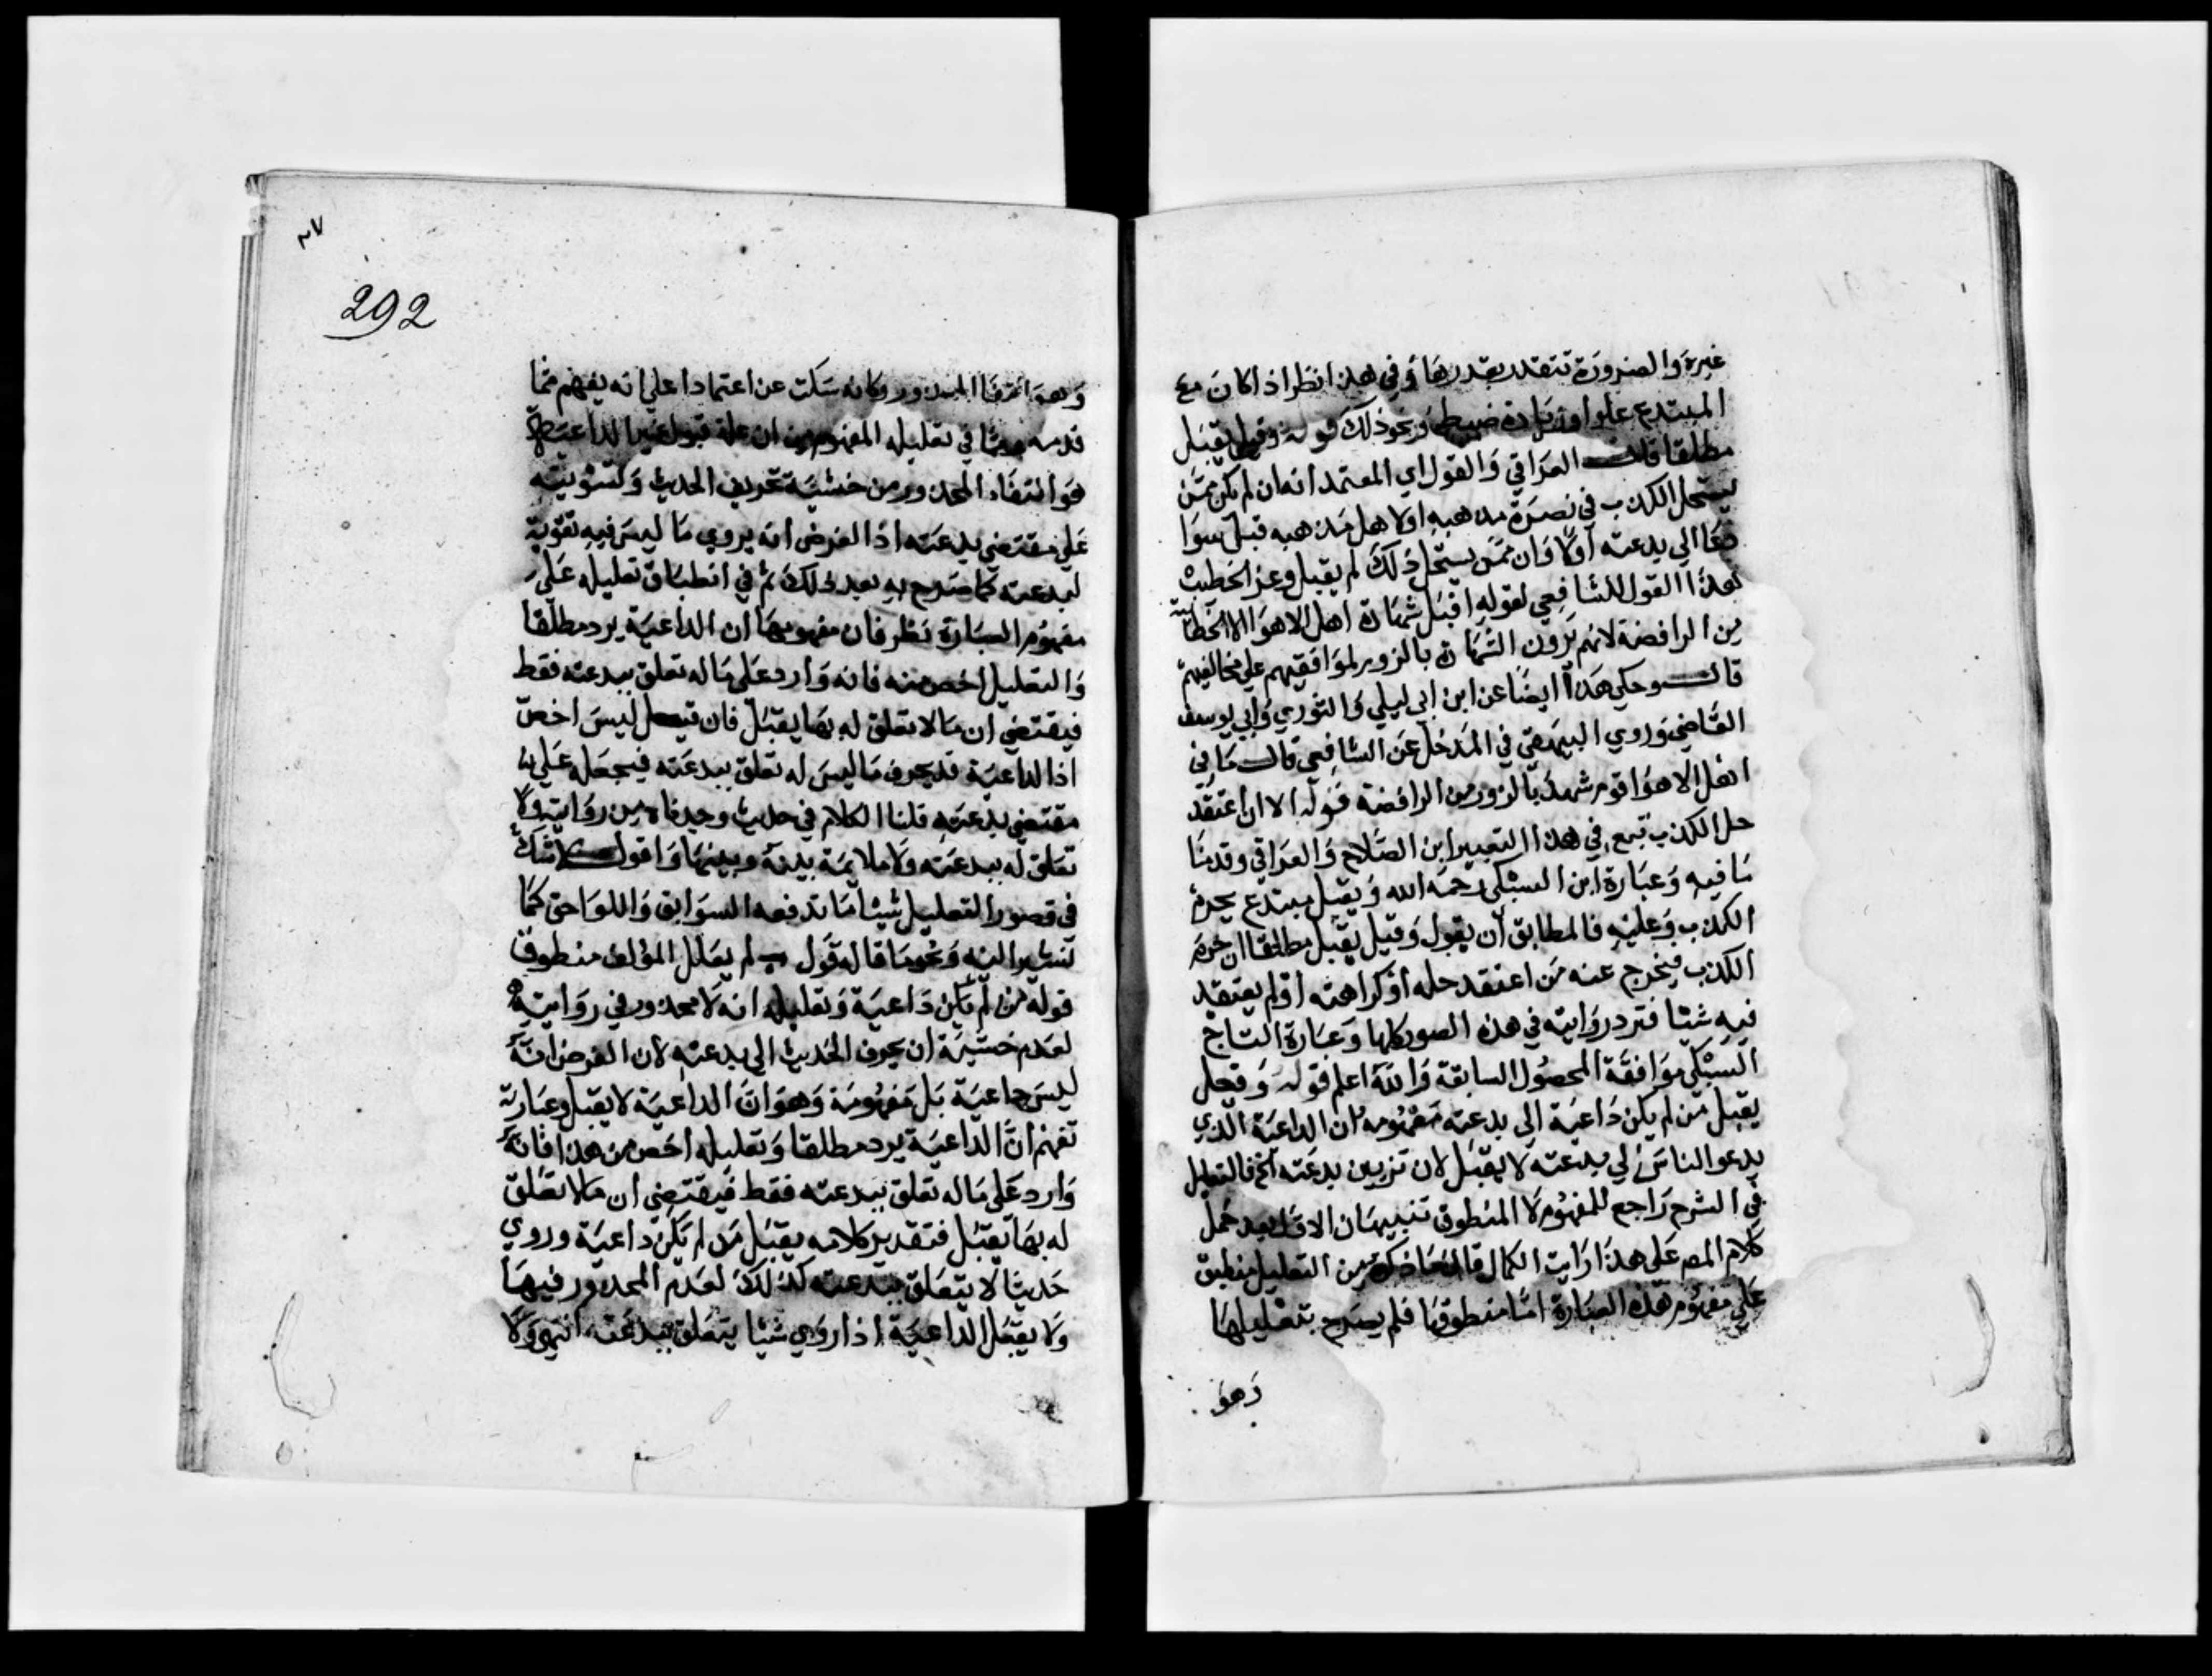 غيره والضرورة تتقدر بقدرها وفي هذا نظر اذا كان مع
المبتدع علو او زيادة ضبط ونحو ذلك قوله وقيل يقبل
مطلقا قال العراقي والقول اي المعتمد انه ان لم يكن ممن
يستحل الكذب في نصرة مذهبه او لاهل مذهبه قبل سوا
دعا الي بدعته اولا وان ممن يستحل ذلك لم يقبل وعز الخطيب
هذا القول للشافعي لقوله اقبل شهادة اهل الاهوا الا الخطابية
من الرافضة لانهم يرون الشهادة بالزور لموافقيهم علي مخالفيهم
قال وحكي هذا ايضا عن ابن ابي ليلي والثوري وابي يوسف
القاضي وروي البيهقي في المدخل عن الشافعي قال ما في
اهل الاهوا قوم اشهد بالزور من الرافضة قوله الا ان اعتقد
حل الكذب تبع في هذا التعبير ابن الصلاح والعراقي وقدمنا
ما فيه وعبارة ابن السبكي رحمه الله ويقبل مبتدع يحرم
الكذب وعليه فالمطابق ان يقول وقيل يقبل مطلقا ان حرم
الكذب فيخرج عنه من اعتقد حله او كراهته او لم يعتقد
فيه شيئا فترد روايته في هذه الصور كلها وعبارة التاج
السبكي موافقة المحصول السابقة والله اعلم قوله وقيل
يقبل من لم يكن داعية الي بدعته مفهومه ان الداعية الذي
يدعو الناس الي بدعته لا يقبل لان تزيين بدعته الخ فالتعليل
في الشرح راجع للمفهوم لا المنطوق تنبيهان الاول بعد حمل
كلام المص علي هذا رايت الكمال قال ما ذكره من التعليل منطبق
علي مفهوم هذه العبارة اما منطوقها فلم يصرح بتعليلها
وهو
٣٧
292
وهو انتفا المحذور وكانه سكت عن اعتمادا علي انه يفهم مما
قدمه ومما في تعليله المفهوم من ان علة قبول غير الداعية
هو انتفاء المحذور من خشية تحريف الحديث وتسويته
علي مقتضي بدعته اذ الفرض انه يروي ما ليس فيه تقوية
لبدعته كما صرح به بعد ذلك ثم في انطباق تعليله علي
مفهوم العبارة نظر فان مفهومها ان الداعية يرد مطلقا
والتعليل اخص منه فانه وارد علي ماله تعلق ببدعته فقط
فيقتضي ان مالا تعلق له بها يقبل فان قيل ليس اخص
اذ الداعية قد يحرف ما ليس له تعلق ببدعته فيجعله علي
مقتضي بدعته قلنا الكلام في حديث وجدناه من روايته ولا
تعلق له ببدعته ولا ملايمة بينه وبينها واقول لا شك
في قصور التعليل شيئا ما تدفعه السوابق واللواحق كما
تشير اليه ونحو ما قاله قول لم يعلل المؤلف منطوق
قوله من لم يكن داعية وتعليله انه لا محذور في روايته
لعدم خشية ان يحرف الحديث الي بدعته لان الفرض انه
ليس داعية بل مفهومه وهو ان الداعية لا يقبل وعبارته
تفهم ان الداعية يرد مطلقا وتعليله اخص من هذا فانه
وارد علي ماله تعلق ببدعته فقط فيقتضي ان مالا تعلق
له بها يقبل فتقدير كلامه يقبل من لم يكن داعية وروي
حديثا لا يتعلق ببدعته كذلك لعدم المحذور فيها
ولا يقبل الداعية اذا روي شيئا يتعلق ببدعته انتهي ولا